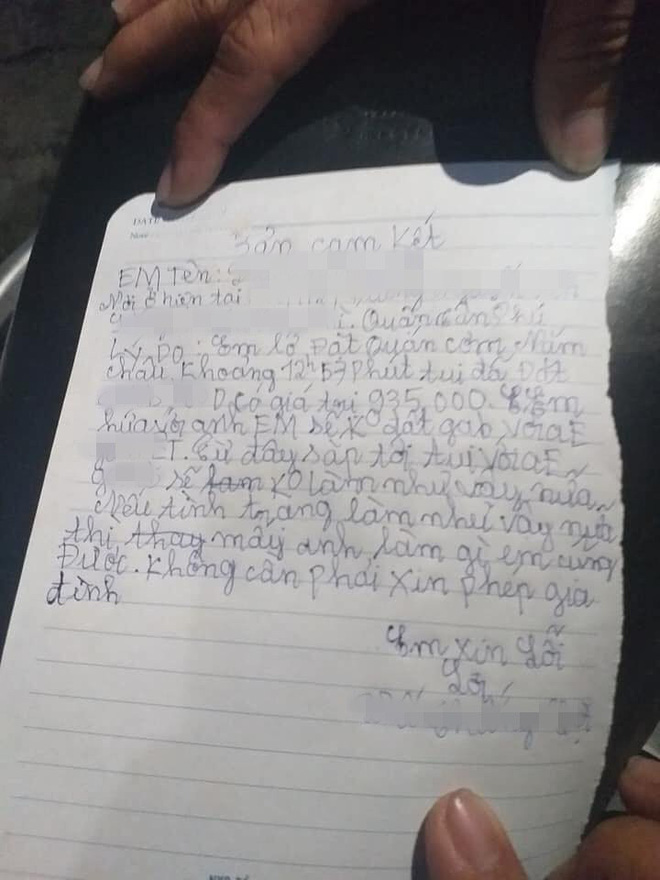 DATE
Bản cam kết
EM Tên:
Nơi ở hiện tại
Quận Tân Phú
Lý Do: Em lở Đặt Quán cơm Năm
châu Khoảng 12h57 Phút tui đã Đặt
D, có giá trị 935,000. Em
hứa với anh EM sẽ Ko đặt gab, với aE
T. Từ đây sắp tới tui với aE
sẽ Ko làm như vậy nữa
Nếu tình trạng làm như vậy nữa
thì mấy anh làm gì em cũng
Được. Không cần phải xin phép gia
đình
Em xin Lỗi